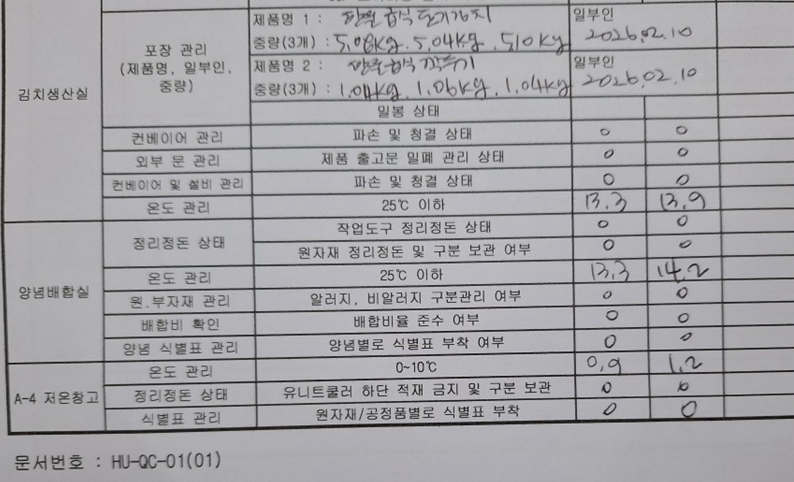 제품명 1 : 포기김치 일부인
포장 관리 중량(3개) : 5.08kg. 5.04kg. 5.10kg 2026.02.10
(제품명, 일부인, 중량) 제품명 2 : 깍두기 일부인
중량(3개) : 1.04kg. 1.06kg. 1.04kg 2026.02.10
김치생산실 밀봉 상태
컨베이어 관리 파손 및 청결 상태 O O
외부 문 관리 제품 출고문 밀폐 관리 상태 O O
컨베이어 및 설비 관리 파손 및 청결 상태 O O
온도 관리 25℃ 이하 13.3 13.9
정리정돈 상태 작업도구 정리정돈 상태 O O
원자재 정리정돈 및 구분 보관 여부 O O
양념배합실 온도 관리 25℃ 이하 13.3 14.2
원.부자재 관리 알러지, 비알러지 구분관리 여부 O O
배합비 확인 배합비율 준수 여부 O O
양념 식별표 관리 양념별로 식별표 부착 여부 O O
온도 관리 0~10℃ 0.9 1.2
A-4 저온창고 정리정돈 상태 유니트쿨러 하단 적재 금지 및 구분 보관 O O
식별표 관리 원자재/공정품별로 식별표 부착 O O
문서번호 : HU-QC-01(01)